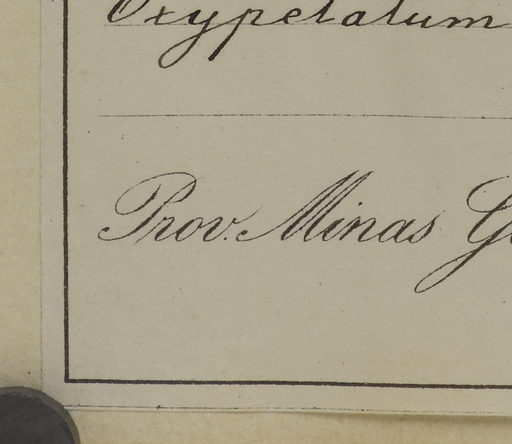 Oxypetalum
Prov. Minas G